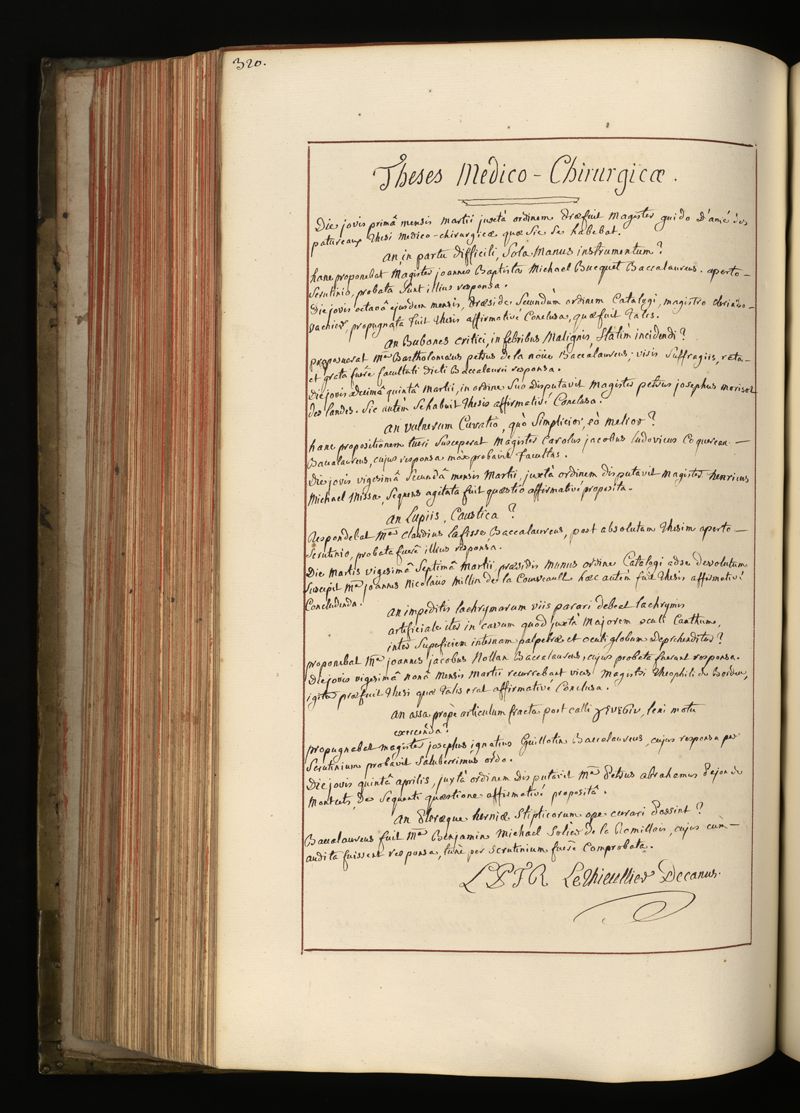 320.
Theses Medico-Chirurgicæ.
Die jovis primâ mensis Martii juxtà ordinem præfuit Magister guido d'amé des
patureaux Thesi Medico-chirurgicæ quæ sic se habebat.
an, in partu difficili, Sola Manus instrumentum?
hanc proponebat Magister joannes Baptista Michael Bucquet Baccalaureus. aperto-
Scrutinio, probata sunt illius responsa.
Die jovis octavâ ejusdem mensis, Præside Secundùm ordinem Catalogi, magistro
propugnata fuit Thesis affirmativè Conclusa, quæ fuit talis.
an Bubones critici, in febribus Malignis Statim incidendi?
proposuerat Mer Bartholomæus petrus de la noüe Baccalaureus, visis Suffragiis, rata-
et grata fuêre facultati dicti Baccalaurei responsa.
Die jovis decimâ quintâ Martii, in ordine Suo disputavit Magister petrus josephus morisot
des landes. Sic autem Se habuit Thesis affirmativè Conclusa.
an vulnerum Curatio, quò Simplicior, eò melior?
hanc propositionem tueri Susceperat Magister Carolus jacobus ludovicus Coquereau-
Baccalaureus, cujus responsa mox probavit facultas.
Die jovis vigesimâ Secundâ mensis Martii, juxtà ordinem disputavit Magister henricus
Michael Missa, Sequens agitata fuit quæstio affirmativè proposita.
an Lupiis, Caustica?
Respondebat Mer Claudius lafisse Baccalaureus, post absolutam Thesim aperto-
Scrutinio, probata fuêre illius responsa.
Die Martis vigesimâ Septimâ Martii præsidis munus ordine Catalogi ad se devolutum
Suscepit Mer joannes Nicolaüs Millin de la Courveault hæc autem fuit Thesis affirmativè
Concludenda.
an impeditis lachrymarum viis parari debeat lachrymis
artificiale iter in cavum quod juxtà Majorem oculi Canthum,
inter Superficiem internam palpebræ et oculi globum deprehenditur?
proponebat Mer joannes jacobus Nollan Baccalaureus, cujus probata fuerunt responsa.
Die jovis vigesimâ nonâ Mensis Martii recurrebant vices Magistri Theophili de Bordeu,
igitur præfuit Thesi quæ talis erat affirmativè Conclusa.
an ossa propè articulum fracta post calli γένεσιν, leni motu
exercenda?
propugnabat magister josephus ignatius Guillotin Baccalaureus, cujus responsa per
Scrutinium probavit Saluberrimus ordo.
Die jovis quintâ aprilis, juxtà ordinem disputavit Mer Petrus abrahamus Pajon de
Moncets, De Sequenti quæstione affirmativè propositâ.
an Pleræque herniæ Stipticorum ope curari possint?
Baccalaureus fuit Mer Benjamin Michael Solier de la Romillais, cujus cùm-
audita fuissent responsa, tunc per scrutinium fuêre Comprobata.
LPFR LeThieullier Decanus.